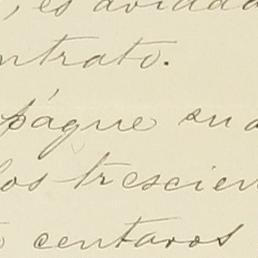 , es
ntrato.
págue su
los trescien
centavos